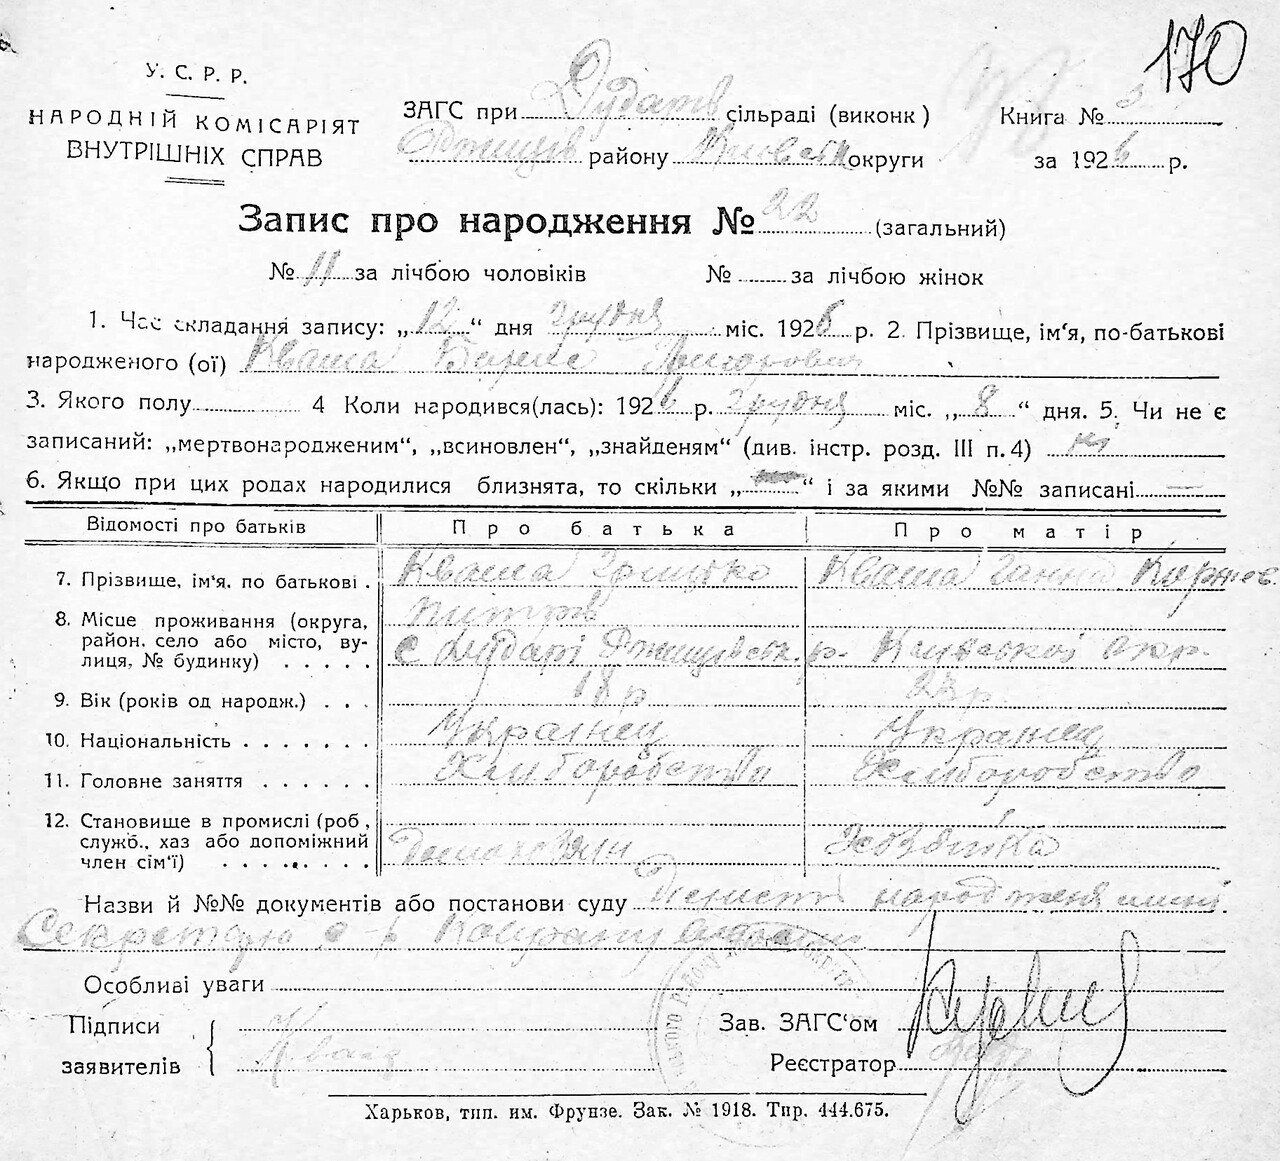 170
У. С. Р. Р.
НАРОДНІЙ КОМІСАРІЯТ
ВНУТРІШНІХ СПРАВ
ЗАГС при Дударів сільраді (виконк)
Ржищів району Київськ округи
Книга №
за 1926 р.
Запис про народження № 22 (загальний)
№ 11 за лічбою чоловіків № за лічбою жінок
1. Час складання запису: „12“ дня грудня міс. 1926 р. 2. Прізвище, ім'я, по-батькові
народженого (ої) Кваша Борис Григорович
3. Якого полу 4 Коли народився(лась): 1926 р. грудня міс. „8“ дня. 5. Чи не є
записаний: „мертвонародженим“, „всиновлен“, „знайденям“ (див. інстр. розд. III п. 4) ні
6. Якщо при цих родах народилися близнята, то скільки „ “ і за якими №№ записані —
Відомості про батьків Про батька Про матір
7. Прізвище, ім'я, по батькові. Кваша Грицько Кваша Ганна Корнєє
8. Місце проживання (округа,
район, село або місто, ву-
лиця, № будинку) с Дударі Ржищівськ. р. Київської окр.
9. Вік (років од народж.) 18 р 23 р.
10. Національність Украінец Украінец
11. Головне заняття Хліборобство Хліборобство
12. Становище в промислі (роб,
служб., хаз або допоміжний
член сім'ї) Домохазяін
Назви й №№ документів або постанови суду народженя
Секретарю
Особливі уваги
Підписи
заявителів Кваша
Зав. ЗАГС'ом
Реєстратор
Харьков, тип. им. Фрунзе. Зак. № 1918. Тир. 444.675.